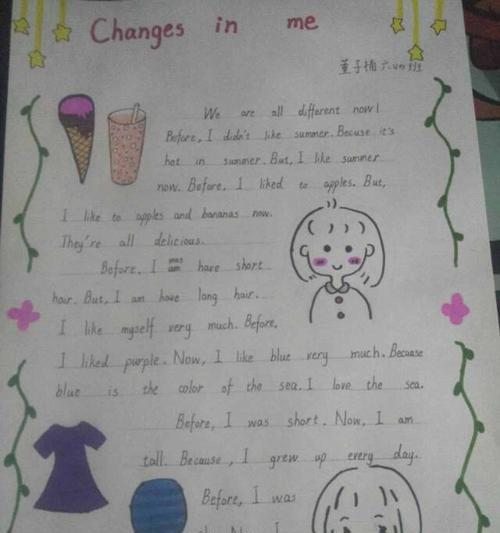 Changes in me
董子楠 六四班
We are all different now!
Before, I didn't like summer. Becuse it's
hot in summer. But, I like summer
now. Before, I liked to apples. But,
I like to apples and bananas now.
They're all delicious.
Before, I was am have short
hair. But, I am have long hair.
I like myself very much. Before,
I liked purple. Now, I like blue very much. Because
blue is the color of the sea. I love the sea.
Before, I was short. Now, I am
tall. Because, I grew up every day.
Before, I was
Now I